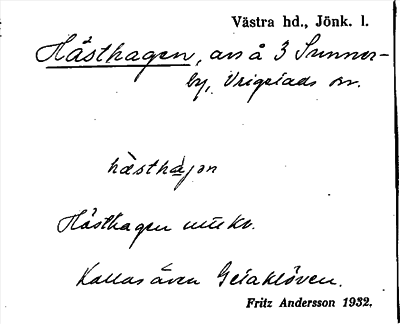 Västra hd., Jönk. l.
Hästhagen, avs å 3 Sunner-
by, Vrigstads sn.
hästhájən
Hästhagen
Kallas även Getaklöven.
Fritz Andersson 1932.